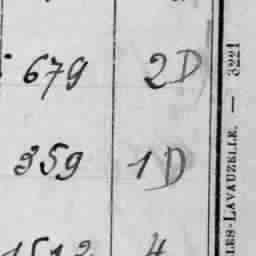 679 2D
359 1D
1512 4
LES-LAVAUZELLE. — 3221